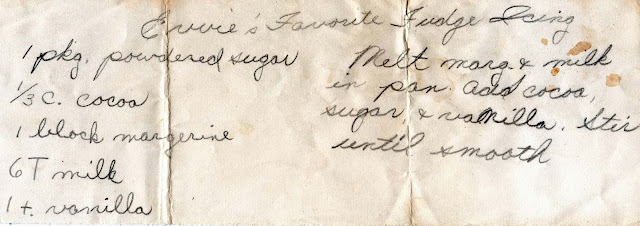 Ervie's Favorite Fudge Icing
1 pkg. powdered sugar
1/3 c. cocoa
1 block margerine
6 T milk
1 t. vanilla
Melt marg. & milk
in pan. Add cocoa,
sugar, & vanilla. Stir
until smooth